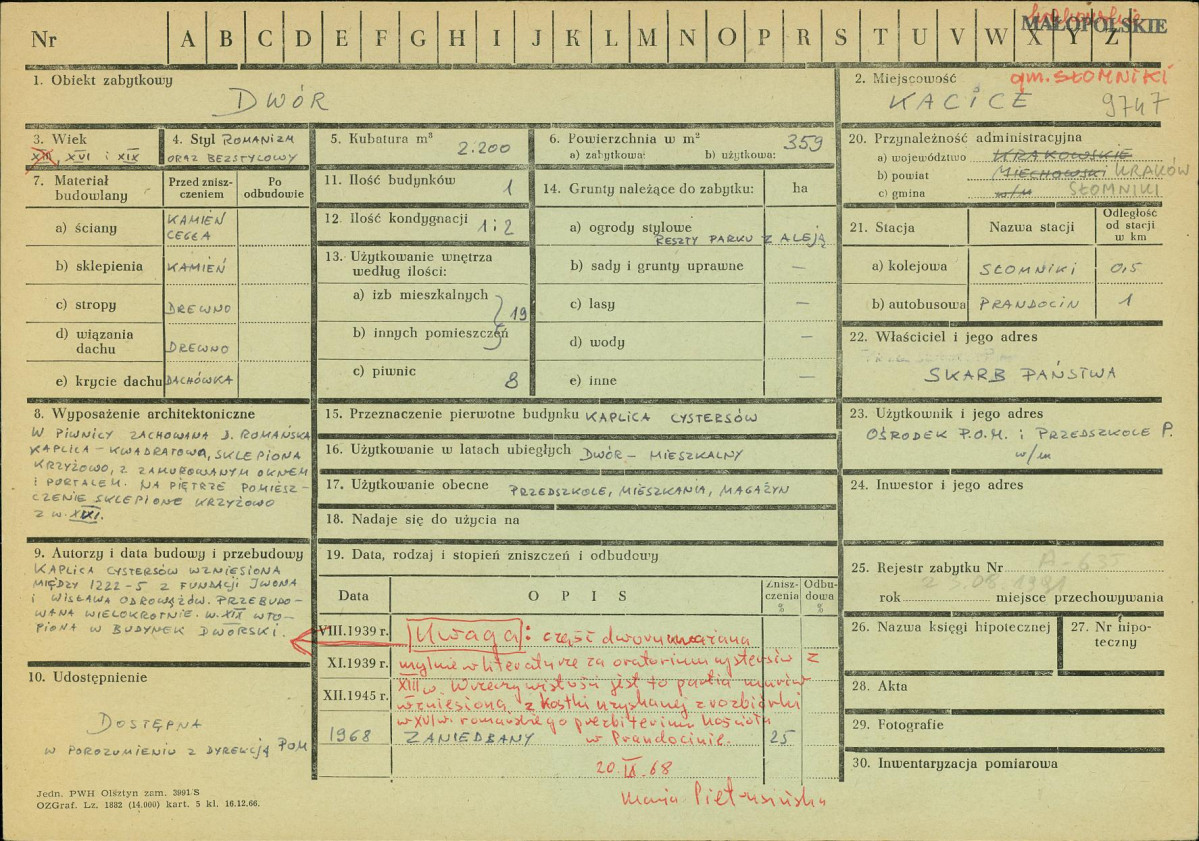 Nr A B C D E F G H I J K L M N O P R S T U V W X Y Z
MAŁOPOLSKIE
1. Obiekt zabytkowy
DWÓR
2. Miejscowość gm. SŁOMNIKI
KACICE 9747
3. Wiek
XIII, XVI i XIX
4. Styl ROMANIZM
ORAZ BEZSTYLOWY
5. Kubatura m³
2.200
6. Powierzchnia w m² 359
a) zabytkowa: b) użytkowa:
7. Materiał budowlany
Przed zniszczeniem
Po odbudowie
a) ściany KAMIEŃ
CEGŁA
b) sklepienia KAMIEŃ
c) stropy DREWNO
d) wiązania dachu DREWNO
e) krycie dachu DACHÓWKA
11. Ilość budynków 1
12. Ilość kondygnacji 1 i 2
13. Użytkowanie wnętrza
według ilości:
a) izb mieszkalnych
19
b) innych pomieszczeń
c) piwnic 8
14. Grunty należące do zabytku: ha
a) ogrody stylowe
RESZTY PARKU Z ALEJĄ
b) sady i grunty uprawne —
c) lasy —
d) wody —
e) inne —
8. Wyposażenie architektoniczne
W PIWNICY ZACHOWANA D. ROMAŃSKA
KAPLICA – KWADRATOWA, SKLEPIONA
KRZYŻOWO, Z ZAMUROWANYM OKNEM
I PORTALEM. NA PIĘTRZE POMIESZ-
CZENIE SKLEPIONE KRZYŻOWO
Z W. XVI.
9. Autorzy i data budowy i przebudowy
KAPLICA CYSTERSÓW WZNIESIONA
MIĘDZY 1222-5 Z FUNDACJI IWONA
I WISŁAWA ODROWĄŻÓW. PRZEBUDO-
WANA WIELOKROTNIE. W. XIX WTO-
PIONA W BUDYNEK DWORSKI.
10. Udostępnienie
DOSTĘPNA
W POROZUMIENIU Z DYREKCJĄ POM
15. Przeznaczenie pierwotne budynku KAPLICA CYSTERSÓW
16. Użytkowanie w latach ubiegłych DWÓR – MIESZKALNY
17. Użytkowanie obecne PRZEDSZKOLE, MIESZKANIA, MAGAZYN
18. Nadaje się do użycia na
19. Data, rodzaj i stopień zniszczeń i odbudowy
Data OPIS Zniszczenia % Odbudowa %
VIII.1939 r. Uwaga: część dworu uważana
XI.1939 r. mylnie w literaturze za oratorium cystersów z
XII.1945 r. XIII w. W rzeczywistości jest to partia murów
wzniesiona z kostki uzyskanej z rozbiórki
w XVI w. romańskiego prezbiterium kościoła
w Prandocinie.
1968 ZANIEDBANY 25
20.IX.68
Maria Pietrusińska
20. Przynależność administracyjna
a) województwo KRAKOWSKIE
b) powiat MIECHOWSKI KRAKÓW
c) gmina w/m SŁOMNIKI
21. Stacja Nazwa stacji Odległość od stacji w km
a) kolejowa SŁOMNIKI 0,5
b) autobusowa PRANDOCIN 1
22. Właściciel i jego adres
SKARB PAŃSTWA
23. Użytkownik i jego adres
OŚRODEK P.O.M. i PRZEDSZKOLE P.
w/m
24. Inwestor i jego adres
25. Rejestr zabytku Nr A-635
z 3.08.1981
rok miejsce przechowywania
26. Nazwa księgi hipotecznej
27. Nr hipoteczny
28. Akta
29. Fotografie
30. Inwentaryzacja pomiarowa
Jedn. PWH Olsztyn zam. 3991/S
OZGraf. Lz. 1882 (14.000) kart. 5 kl. 16.12.66.